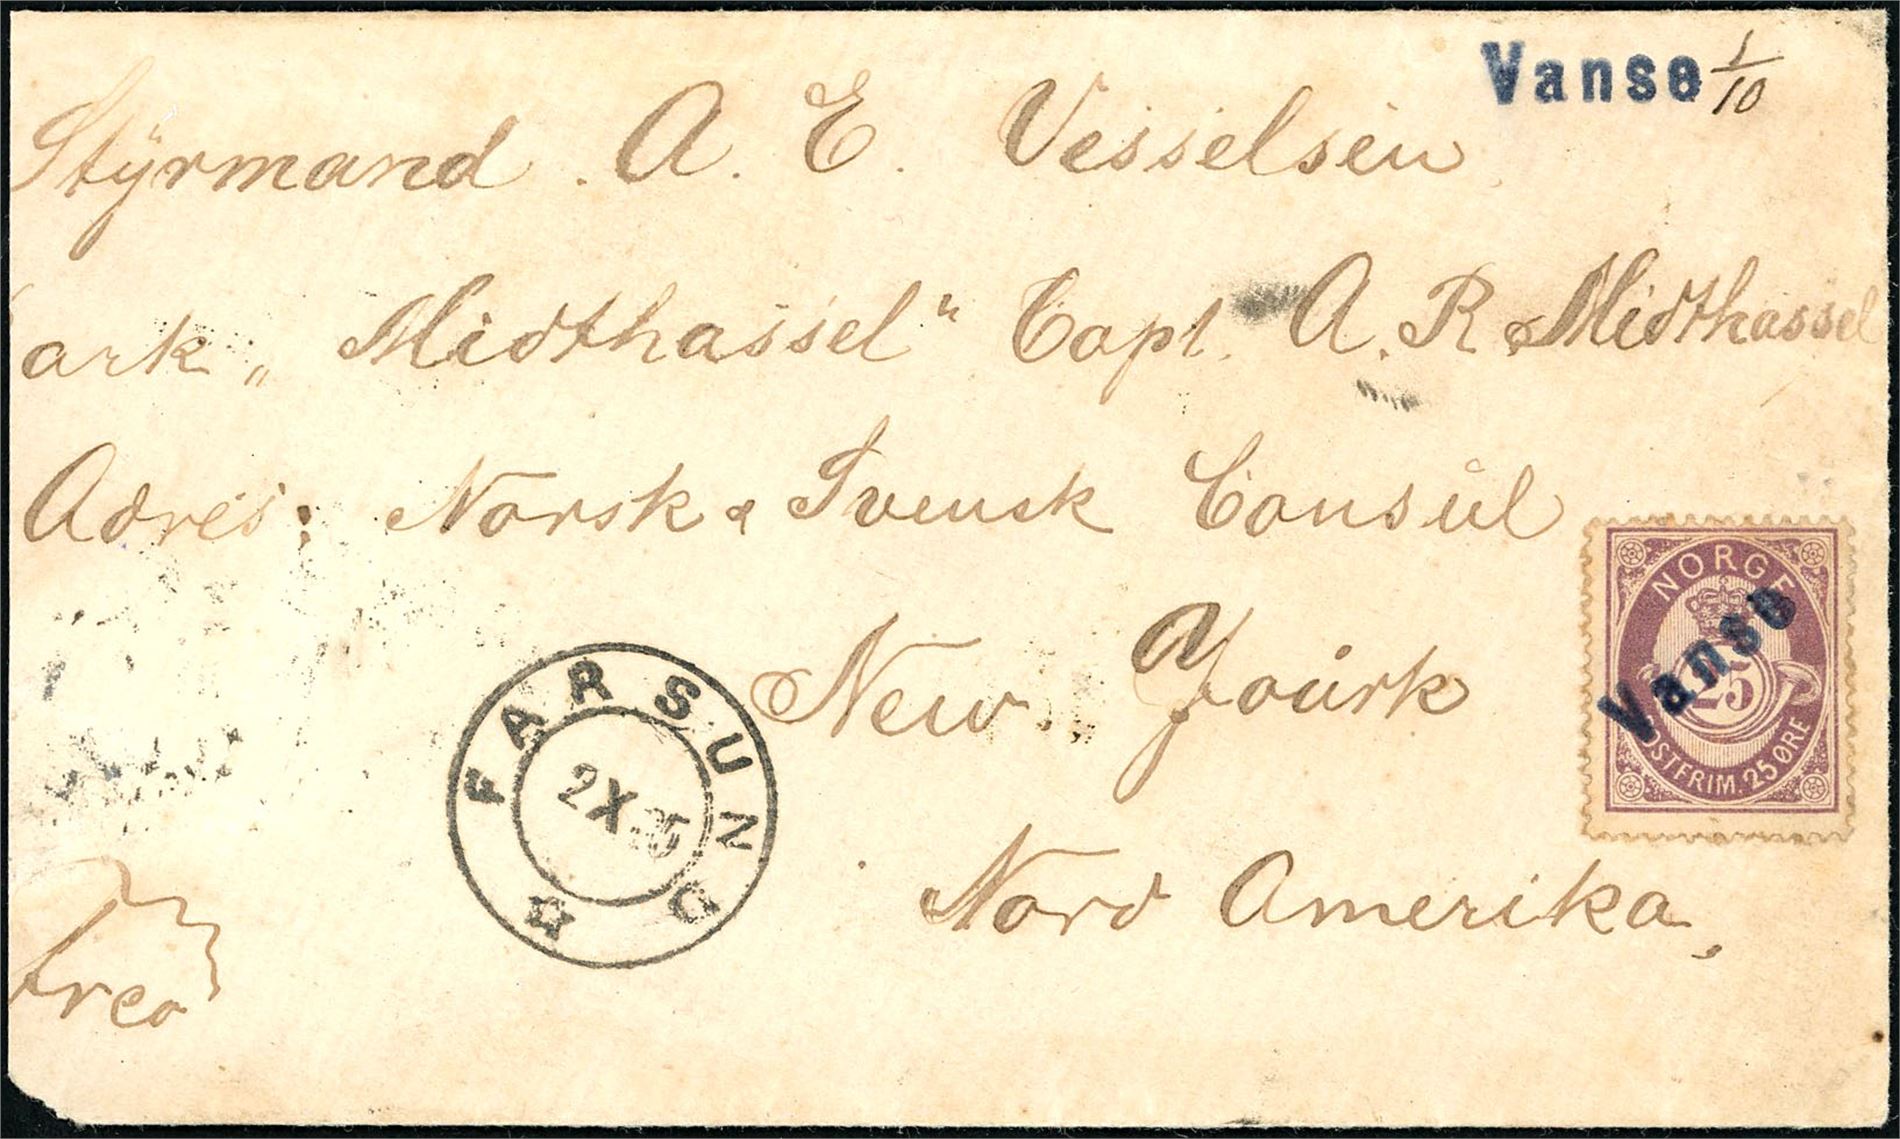 Vansø 1/10
Styrmand A. E. Vesselsen
ark „Midthassel" Capt. A. R. Midthassel
Adres: Norsk & Svensk Consul
New Yourk
Nord Amerika,
FARSUND
2 X 85
NORGE
25
POSTFRIM. 25 ØRE
Vansø